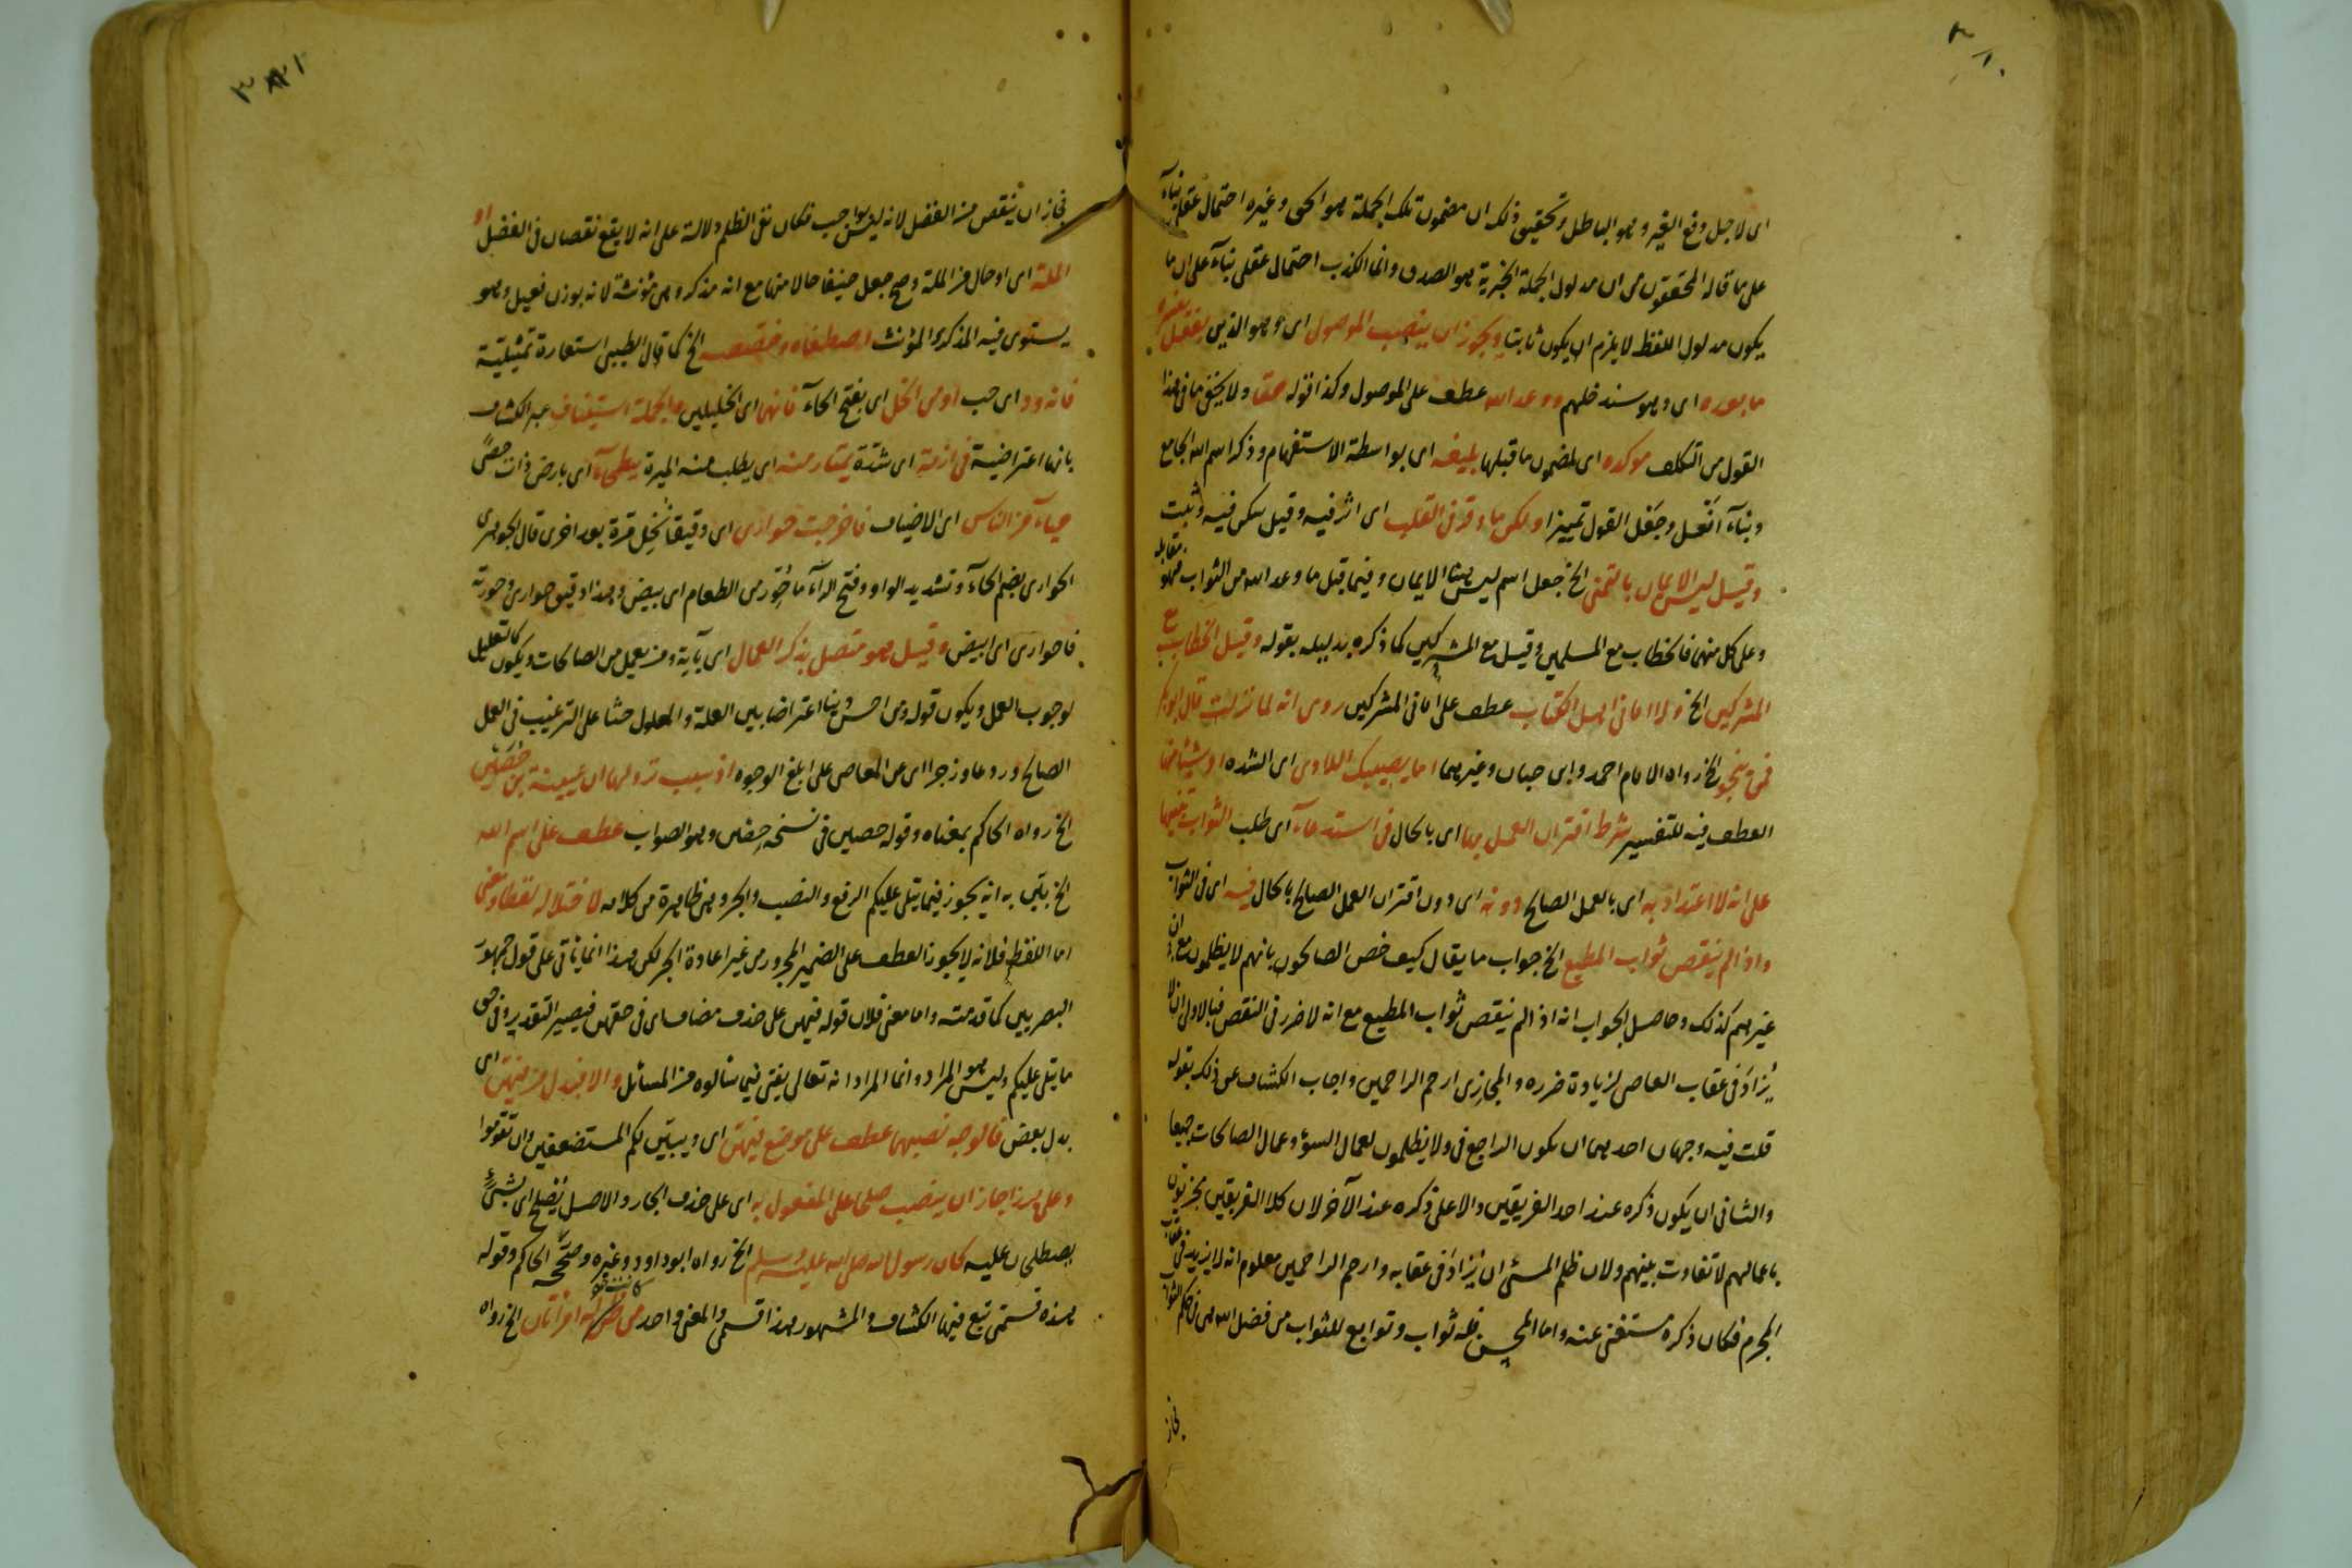 ٣٨٠
اى لاجل دفع الغير وهو الباطل وتحقيق ذلك ان مضمون تلك الجملة هو الحق وغيره احتمال عقلى بناء
على ما قاله المحققون من ان مدلول الجملة الخبرية هو الصدق وانما الكذب احتمال عقلى بناء على ان ما
يكون مدلول اللفظ لا يلزم ان يكون ثابتا ويجوز ان ينصب الموصول اى وهو الذين بفعل يفسره
ما بعده اى وهو سندخلهم ووعد الله عطف على الموصول وكذا قوله حقا ولا يخفى ما فى هذا
القول من التكلف موكده اى لمضمون ما قبلها بليغه اى بواسطة الاستفهام وذكر اسم الله الجامع
وبناء افعل وجعل القول تمييزا ولكن ما وقر فى القلب اى اثر فيه وقيل سكن فيه وثبت
وقيل ليس الايمان بالتمنى الخ جعل اسم ليس هنا الايمان وفيما قبل ما وعد الله من الثواب فهو مقابله
وعلى كل منهما فالخطاب مع المسلمين وقيل مع المشركين كما ذكره بدليله بقوله وقيل الخطاب مع
المشركين الخ ولا امانى اهل الكتاب عطف على امانى المشركين روى انه لما نزلت قال ابو بكر
فمن ينجو الخ رواه الامام احمد وابن حبان وغيرهما اما يصيبك اللاوى اى الشده او شيئا منها
العطف فيه للتفسير شرط اقتران العمل بها اى بالحال فى استدعاء اى طلب الثواب تنبيها
على انه لا اعتداد به اى بالعمل الصالح دونه اى دون اقتران العمل الصالح بالحال فيه اى فى الثواب
واذا لم ينقص ثواب المطيع الخ جواب ما يقال كيف خص الصالحون بانهم لا يظلمون مع ان
غيرهم كذلك وحاصل الجواب انه اذا لم ينقص ثواب المطيع مع انه لا ضرر فى النقص فبالاولى ان لا
يزاد فى عقاب العاصى لزيادة ضرره والمجازى ارحم الراحمين واجاب الكشاف عن ذلك بقوله
قلت فيه وجهان احدهما ان يكون الراجع فى ولا يظلمون لعمال السوء وعمال الصالحات جميعا
والثانى ان يكون ذكره عند احد الفريقين دالا على ذكره عند الآخر لان كلا الفريقين مجزيون
باعمالهم لا تفاوت بينهم ولان ظلم المسئ ان يزاد فى عقابه وارحم الراحمين معلوم انه لا يزيد فى عقاب
المجرم فكان ذكره مستغنى عنه واما المحسن فله ثواب وتوابع للثواب من فضل الله هى فى حكم الثواب
فجاز
٣٨١
فجاز ان ينقص من الفضل لانه ليس بواجب فكان نفى الظلم دلالة على انه لا يقع نقصان فى الفضل او
الملة اى او حال من الملة وصح جعل حنيفا حالا منها مع انه مذكر وهى مؤنثة لانه بوزن فعيل وهو
يستوى فيه المذكر والمؤنث اصطفاه وخصصه الخ كما قال الطيبى استعارة تمثيلية
فانه ود اى حب او من الخل اى بفتح الخاء فانهما اى الخليلين والجملة استيناف عبر الكشاف
بانها اعتراضية فى ازمة اى شدة يمتار منه اى يطلب منه الميرة ببطحاء اى بارض ذات حصى
حياء من الناس اى الاضياف فاخرجت حوارى اى دقيقا نخل مرة بعد اخرى قال الجوهرى
الحوارى بضم الحاء وتشديد الواو وفتح الراء ما حور من الطعام اى بيض وهذا دقيق حوارى وحورته
فاحوارى اى ابيض وقيل هو متصل بذكر العمال اى بآية ومن يعمل من الصالحات ويكون كالتعليل
لوجوب العمل ويكون قوله ومن احسن دينا اعتراضا بين العلة والمعلول حثا على الترغيب فى العمل
الصالح وردعا وزجرا اى عن المعاصى على ابلغ الوجوه اذ سبب نزولها ان عيينة بن حصين
الخ رواه الحاكم بمعناه وقوله حصين فى نسخة حصن وهو الصواب عطف على اسم الله
الخ بين به انه يجوز فيما يتلى عليكم الرفع والنصب والجر وهى ظاهرة من كلامه لاختلاله لفظا ومعنى
اما اللفظ فلانه لا يجوز العطف على الضمير المجرور من غير اعادة الجر لكن هذا انما يأتى على قول جمهور
البصريين كما قدمته واما معنى فلان قوله فيهن على حذف مضاف اى فى حقهن فيصير التقدير وفى حق
ما يتلى عليكم وليس هو المراد وانما المراد انه تعالى يفتى فيما سألوه من المسائل والا فبدل من فيهن اى
بدل بعض فالوجه نصبهما عطف على موضع فيهن اى ويبين لكم المستضعفين وان تقوموا
وعلى هذا جاز ان ينصب صلحا على المفعول به اى على حذف الجار والاصل بصلح اى بشئ
يصطلحان عليه كان رسول الله صلى الله عليه وسلم الخ رواه ابو داود وغيره وصححه الحاكم وقوله
هذه قسمتى تبع فيها الكشاف والمشهور هذا قسمى والمعنى واحد من كانت له امرأتان الخ رواه